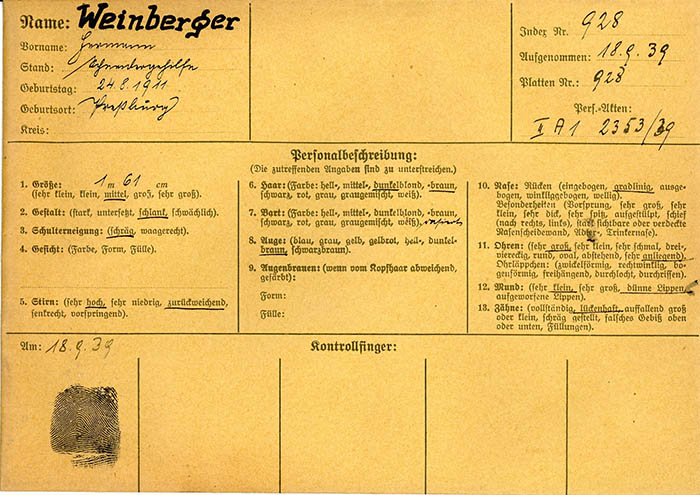 Name: Weinberger
Vorname: Hermann
Stand: Schneidergehilfe
Geburtstag: 24.8.1911
Geburtsort: Preßburg
Kreis:
Index Nr. 928
Aufgenommen: 18.9.39
Platten Nr.: 928
Pers.-Akten:
II A1 2353/39
Personalbeschreibung:
(Die zutreffenden Angaben sind zu unterstreichen.)
1. Größe: 1 m 61 cm
(sehr klein, klein, mittel, groß, sehr groß).
2. Gestalt: (stark, untersetzt, schlank, schwächlich).
3. Schulterneigung: (schräg, waagerecht).
4. Gesicht: (Farbe, Form, Fülle).
5. Stirn: (sehr hoch, sehr niedrig, zurückweichend,
senkrecht, vorspringend).
6. Haar: (Farbe: hell-, mittel-, dunkelblond, -braun,
schwarz, rot, grau, graugemischt, weiß).
7. Bart: (Farbe: hell-, mittel-, dunkelblond, -braun,
schwarz, rot, grau, graugemischt, weiß), rasiert
8. Auge: (blau, grau, gelb, gelbrot, hell-, dunkel-
braun, schwarzbraun).
9. Augenbrauen: (wenn vom Kopfhaar abweichend,
gefärbt):
Form:
Fülle:
10. Nase: Rücken (eingebogen, gradlinig, ausge-
bogen, winkliggebogen, wellig).
Besonderheiten (Vorsprung, sehr groß, sehr
klein, sehr dick, sehr spitz, aufgestülpt, schief
(nach rechts, links), stark sichtbare oder verdeckte
Nasenscheidewand, Adler-, Trinkernase).
11. Ohren: (sehr groß, sehr klein, sehr schmal, drei-,
viereckig, rund, oval, abstehend, sehr anliegend).
Ohrläppchen: (zwickelförmig, rechtwinklig, bo-
genförmig, freihängend, durchlocht, durchrissen).
12. Mund: (sehr klein, sehr groß, dünne Lippen,
aufgeworfene Lippen).
13. Zähne: (vollständig, lückenhaft, auffallend groß
oder klein, schräg gestellt, falsches Gebiß oben
oder unten, Füllungen).
Am: 18.9.39
Kontrollfinger: